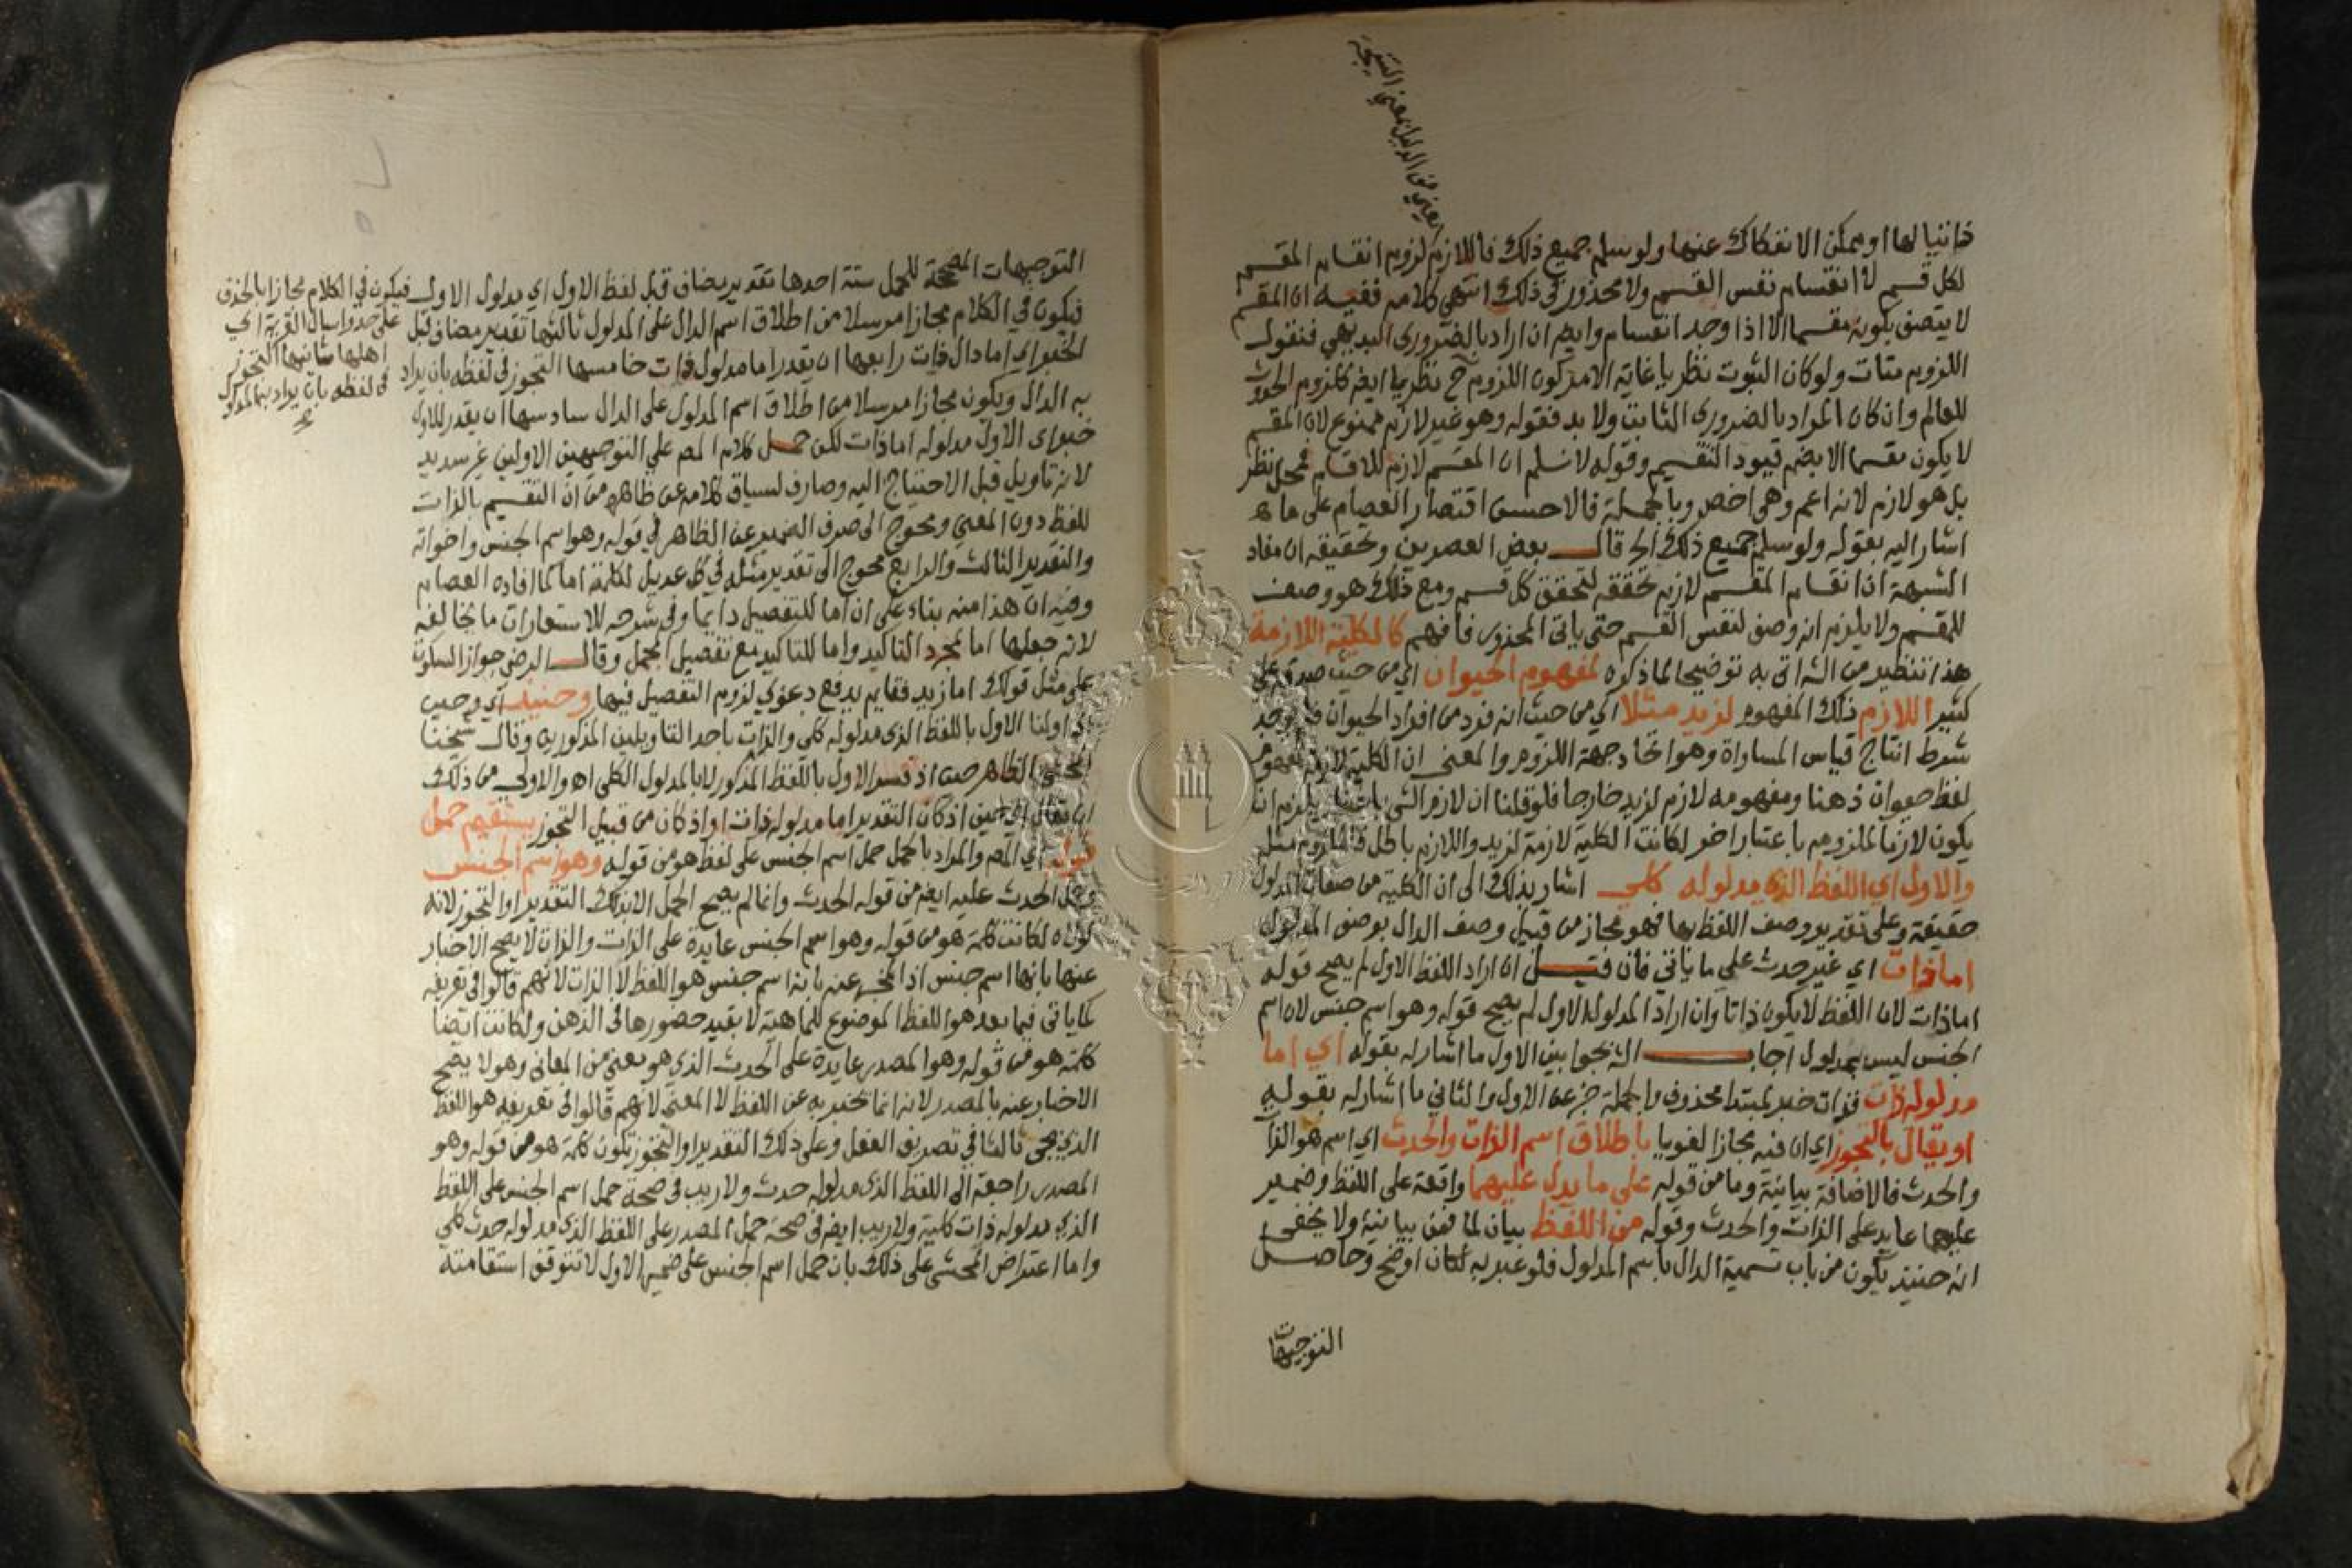 يعني من الدليل بمعنى النتيجة
ذاتيا لها او يمكن الانفكاك عنها ولو سلم جميع ذلك فاللازم لزوم انقسام المقسم
لكل قسم لا انقسام نفس القسم ولا محذور في ذلك انتهى كلامه ففيه ان المقسم
لا يتصف بكونه مقسما الا اذا وجد انقسام وايضا ان اراد بالضروري البديهي فنقول
اللزوم ولو كان الثبوت نظريا غاية الامر كون اللزوم ح نظريا ايضا كلزوم الحدوث
للعالم وان كان المراد بالضروري الثابت ولا بد فقوله وهو غير لازم ممنوع لان المقسم
لا يكون مقسما الا بضم قيود التقسيم وقوله لا نسلم ان المقسم لازم للاقسام محل نظر
بل هو لازم لانه اعم وهي اخص وبالجملة فالاحسن اقتصار العصام على ما
اشار اليه بقوله ولو سلم جميع ذلك الخ قال بعض العصريين وتحقيقه ان مفاد
الشبهة ان انقسام المقسم لازم تحققه لتحقق كل قسم ومع ذلك هو وصف
للمقسم ولا يلزم انه وصف لنفس القسم حتى ياتي المحذور فافهم كالكلية اللازمة
هذا تنظير من الشه اتى به توضيحا لما ذكره لمفهوم الحيوان اي من حيث صدقه على
كثير اللازم ذلك المفهوم لزيد مثلا اي من حيث انه فرد من افراد الحيوان فلم يوجد
شرط انتاج قياس المساواة وهو اتحاد جهة اللزوم والمعنى ان الكلية لازمة لمفهوم
لفظ حيوان ذهنا ومفهومه لازم لزيد خارجا فلو قلنا ان لازم الشي باعتبار يلزم ان
يكون لازما لملزومه باعتبار اخر لكانت الكلية لازمة لزيد واللازم باطل فالملزوم مثله
والاول اي اللفظ الذي مدلوله كلي اشار بذلك الى ان الكلية من صفات المدلول
حقيقة وعلى تقدير وصف اللفظ بها فهو مجاز من قبيل وصف الدال بوصف المدلول
اما ذات اي غير حدث على ما ياتي فان قيل ان اراد اللفظ الاول لم يصح قوله
اما ذات لان اللفظ لا يكون ذاتا وان اراد المدلول الاول لم يصح قوله وهو اسم جنس لان اسم
الجنس ليس بمدلول اجاب الشه بجوابين الاول ما اشار له بقوله اي اما
مدلوله ذات فذات خبر لمبتدا محذوف والجملة خبر عن الاول والثاني ما اشار له بقوله
او يقال بالتجوز اي ان فيه مجازا لغويا باطلاق اسم الذات والحدث اي اسم هو الذات
والحدث فالاضافة بيانية وما من قوله على ما يدل عليهما واقعة على اللفظ وضمير
عليهما عايد على الذات والحدث وقوله من اللفظ بيان لما فمن بيانية ولا يخفى
انه حينئذ يكون من باب تسمية الدال باسم المدلول فلو عبر به لكان اوضح وحاصل
التوجيهات
التوجيهات المصححة للحمل ستة احدها تقدير مضاف قبل لفظ الاول اي مدلول الاول فيكون في الكلام مجازا بالحذف
على حد واسال القرية اي
اهلها ثانيها التجوز
في لفظه بان يراد بها المدلول
صح
فيكون في الكلام مجازا مرسلا من اطلاق اسم الدال على المدلول ثالثها تقدير مضاف قبل
الخبر اي اما دال ذات رابعها ان يقدر اما مدلوله ذات خامسها التجوز في لفظه بان يراد
به الدال ويكون مجازا مرسلا من اطلاق اسم المدلول على الدال سادسها ان يقدر للاول
خبر اي الاول مدلوله اما ذات لكن حمل كلام المص على التوجيهين الاولين غير سديد
لانه تاويل قبل الاحتياج اليه وصارف لسياق كلامه عن ظاهره من ان التقسيم بالذات
للفظ دون المعنى ومحوج الى صرف الضمير عن الظاهر في قوله وهو اسم الجنس واخواته
والتقدير الثالث والرابع محوج الى تقدير مثله في كل عديل لكلمة اما كما افاده العصام
وفيه ان هذا منه بناء على ان اما للتفصيل دايما وفي شرحه للاستعارات ما يخالفه
لانه جعلها اما لمجرد التاكيد واما للتاكيد مع تفصيل المجمل وقال الرضي جواز السكوت
على مثل قولك اما زيد فقايم يدفع دعوى لزوم التفصيل فيها وحينئذ اي وحين
اذ اولنا الاول باللفظ الذي مدلوله كلي والذات باحد التاويلين المذكورين وقال شيخنا
المحشي الظاهر حين اذ فسر الاول باللفظ المذكور لا بالمدلول الكلي اه والاولى من ذلك
ان يقال اي حين اذ كان التقدير اما مدلوله ذات او اذ كان من قبيل التجوز يستقيم حمل
قوله اي المص والمراد بالحمل حمل اسم الجنس على لفظ هو من قوله وهو اسم الجنس
وحمل الحدث عليه ايضا من قوله الحدث وانما لم يصح الحمل الا بذلك التقدير او التجوز لانه
لولاه لكانت كلمة هو من قوله وهو اسم الجنس عايدة على الذات والذات لا يصح الاخبار
عنها بانها اسم جنس اذ المخبر عنه بانه اسم جنس هو اللفظ لا الذات لانهم قالوا في تعريفه
كما ياتي فيما بعد هو اللفظ الموضوع للماهية لا بقيد حضورها في الذهن ولكانت ايضا
كلمة هو من قوله وهو المصدر عايدة على الحدث الذي هو معنى من المعاني وهو لا يصح
الاخبار عنه بالمصدر لانه انما يخبر به عن اللفظ لا المعنى لانهم قالوا في تعريفه هو اللفظ
الذي يجي ثالثا في تصريف الفعل وعلى ذلك التقدير او التجوز تكون كلمة هو من قوله وهو
المصدر راجعة الى اللفظ الذي مدلوله حدث ولا ريب في صحة حمل اسم الجنس على اللفظ
الذي مدلوله ذات كلية ولا ريب ايضا في صحة حمل المصدر على اللفظ الذي مدلوله حدث كلي
واما اعتراض المحشي على ذلك بان حمل اسم الجنس على ضمير الاول لا تتوقف استقامته